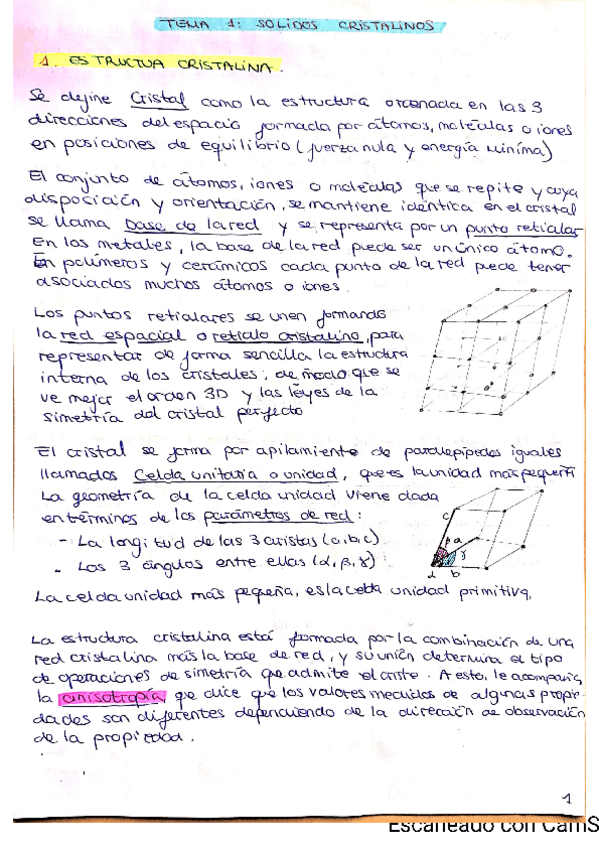 TEMA 1: SOLIDOS CRISTALINOS
1. ESTRUCTUA CRISTALINA.
Se define Cristal como la estructura ordenada en las 3
direcciones del espacio formada por átomos, moléculas o iones
en posiciones de equilibrio (fuerza nula y energía mínima)
El conjunto de átomos, iones o moléculas que se repite y cuya
disposición y orientación, se mantiene idéntica en el cristal
se llama base de la red y se representa por un punto reticular
En los metales, la base de la red puede ser un único átomo.
En polímeros y cerámicos cada punto de la red puede tener
asociados muchos átomos o iones.
Los puntos reticulares se unen formando
la red espacial o retículo cristalino, para
representar de forma sencilla la estructura
interna de los cristales, de modo que se
ve mejor el orden 3D y las leyes de la
simetría del cristal perfecto
El cristal se forma por apilamiento de paralepípedos iguales
llamados Celda unitaria o unidad, que es la unidad más pequeñ
La geometría de la celda unidad viene dada
en términos de los parámetros de red:
- La longitud de las 3 aristas (a, b, c)
- Los 3 ángulos entre ellas (α, β, γ)
c
β a γ
α b
La celda unidad más pequeña, es la celda unidad primitiva,
La estructura cristalina está formada por la combinación de una
red cristalina más la base de red, y su unión determina el tipo
de operaciones de simetría que admite el cristal. A esto, le acompaña
la anisotropía que dice que los valores medidos de algunas propie-
dades son diferentes dependiendo de la dirección de observación
de la propiedad.
1
Escaneado con CamS